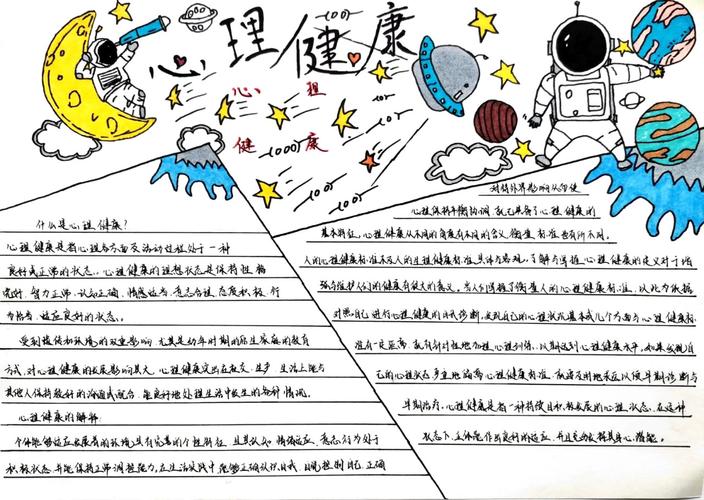 心理健康
心理
健康
什么是心理健康?
心理健康是指心理各方面及活动过程处于一种
良好或正常的状态。心理健康的理想状态是保持性格
完好、智力正常、认知正确、情感适当、意志合理、态度积极、行
为恰当、适应良好的状态。
受到遗传和环境的双重影响,尤其是幼年时期的原生家庭的教育
方式,对心理健康的发展影响甚大。心理健康突出在社交、生产、生活上能与
其他人保持较好的沟通或配合,能良好地处理生活中发生的各种情况。
心理健康的解释
个体能够适应发展着的环境,具有完善的个性特征,且其认知、情绪反应、意志行为处于
积极状态,并能保持正常调控能力。在生活实践中,能够正确认识自我,自觉控制自己,正确
对待外界影响从而使
心理保持平衡协调,就已具备了心理健康的
基本特征。心理健康从不同的角度有不同的含义,衡量标准也有所不同。
人的心理健康标准不及人的生理健康标准具体与客观。了解与掌握心理健康的定义对于增
强与维护人们的健康有较大的意义。当人们掌握了衡量人的心理健康标准,以此为依据
对照自己,进行心理健康的自我诊断。发现自己的心理状况某个或几个方面与心理健康标
准有一定距离,就有针对性地加强心理锻炼,以期达到心理健康水平。如果发现自
己的心理状态严重地偏离心理健康标准,就要及时地求医,以便早期诊断与
早期治疗。心理健康是指一种持续且积极发展的心理状态,在这种
状态下,主体能作出良好的适应,并且充分发挥其身心潜能。